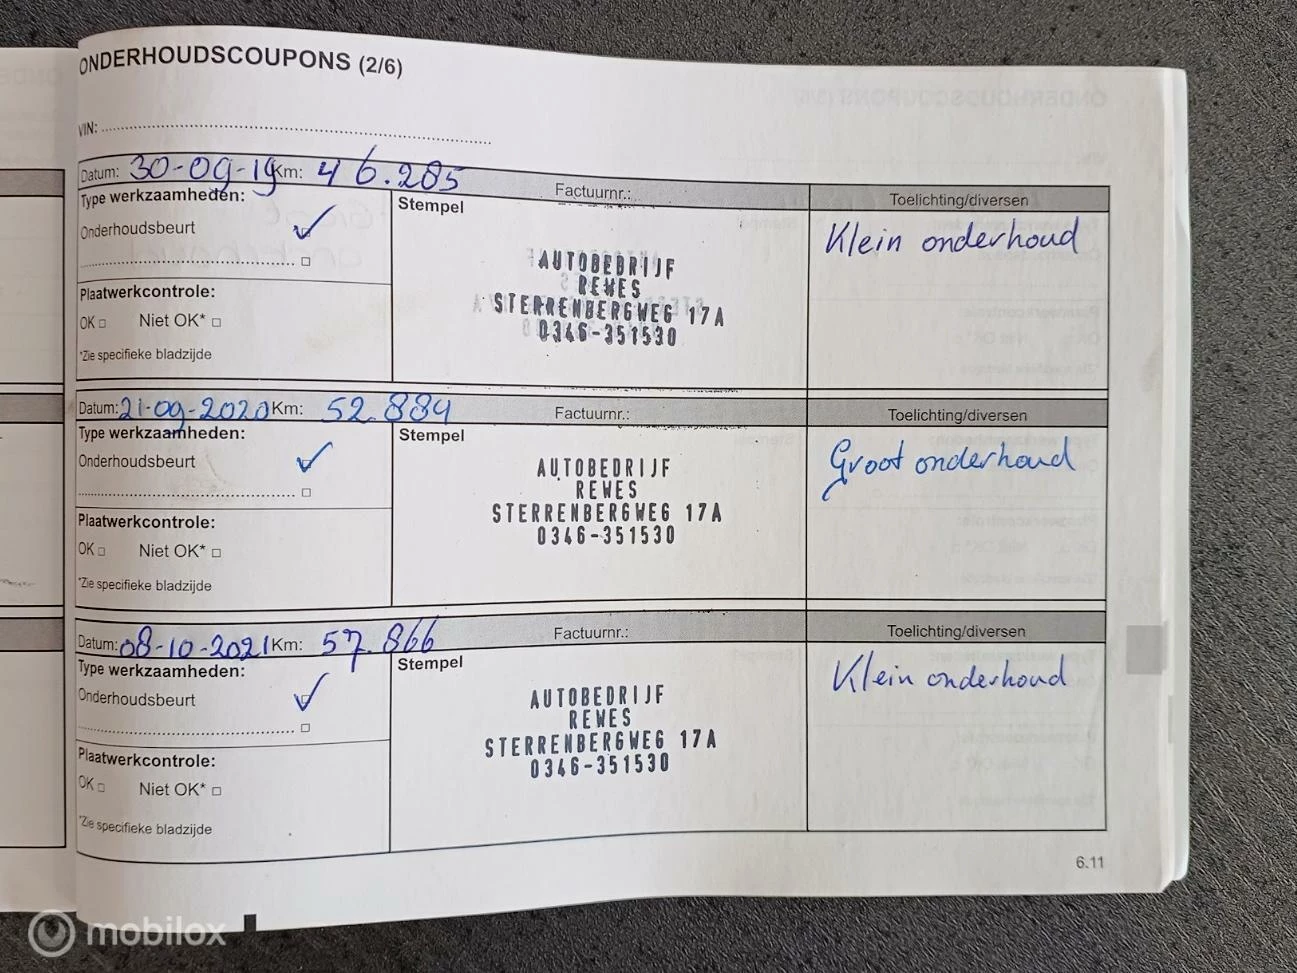 ONDERHOUDSCOUPONS (2/6)
VIN:
Datum: 30-09-19 Km: 46.285 Factuurnr.: Toelichting/diversen
Type werkzaamheden: Stempel
Klein onderhoud
Onderhoudsbeurt
AUTOBEDRIJF
REWES
Plaatwerkcontrole:
STERRENBERGWEG 17A
OK Niet OK*
0346-351530
*Zie specifieke bladzijde
Datum: 21-09-2020 Km: 52.884 Factuurnr.: Toelichting/diversen
Type werkzaamheden: Stempel
Onderhoudsbeurt
Groot onderhoud
AUTOBEDRIJF
REWES
STERRENBERGWEG 17A
Plaatwerkcontrole:
0346-351530
OK Niet OK*
*Zie specifieke bladzijde
Datum: 08-10-2021 Km: 57.866 Factuurnr.: Toelichting/diversen
Type werkzaamheden: Stempel
Klein onderhoud
Onderhoudsbeurt
AUTOBEDRIJF
REWES
STERRENBERGWEG 17A
Plaatwerkcontrole:
0346-351530
OK Niet OK*
*Zie specifieke bladzijde
6.11
mobilox